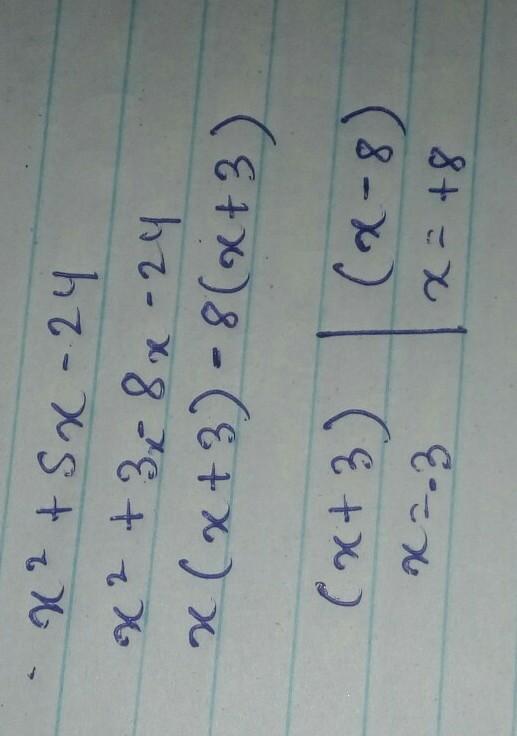 x² + 5x - 24
x² + 3x - 8x - 24
x(x+3) - 8(x+3)
(x+3) | (x-8)
x = -3 | x = +8